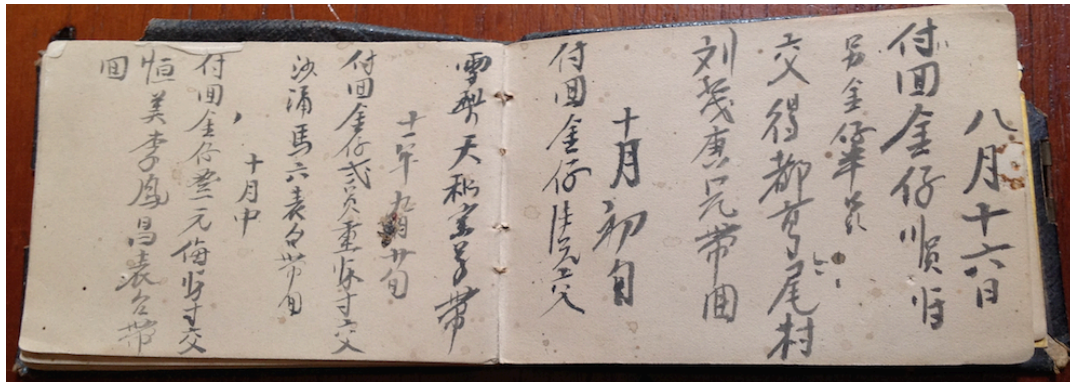 八月十六日
付回金仔
另金仔
交得都亨尾村
刘茂庚兄带回
十月初旬
付回金仔
雪梨天和宝号带
十一年九月廿旬
付回金仔弍员重 寸交
沙涌馬六表台带回
十月中
付回金仔 元 寸交
恒美李鳳昌表台带
回